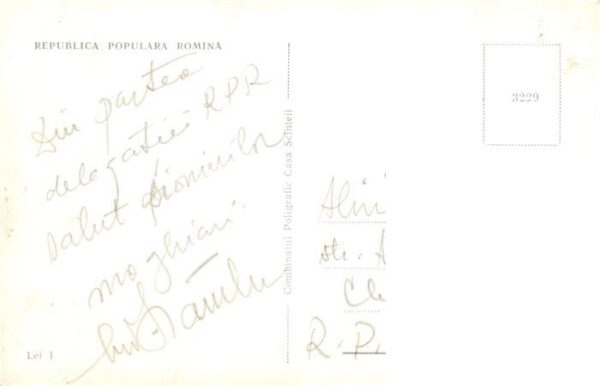 REPUBLICA POPULARA ROMINA
Din partea
delegatii RPR
salut pionierilor
maghiari.
3229
Combinatul Poligrafic Casa Scînteii
str. A
R. P.
Lei 1